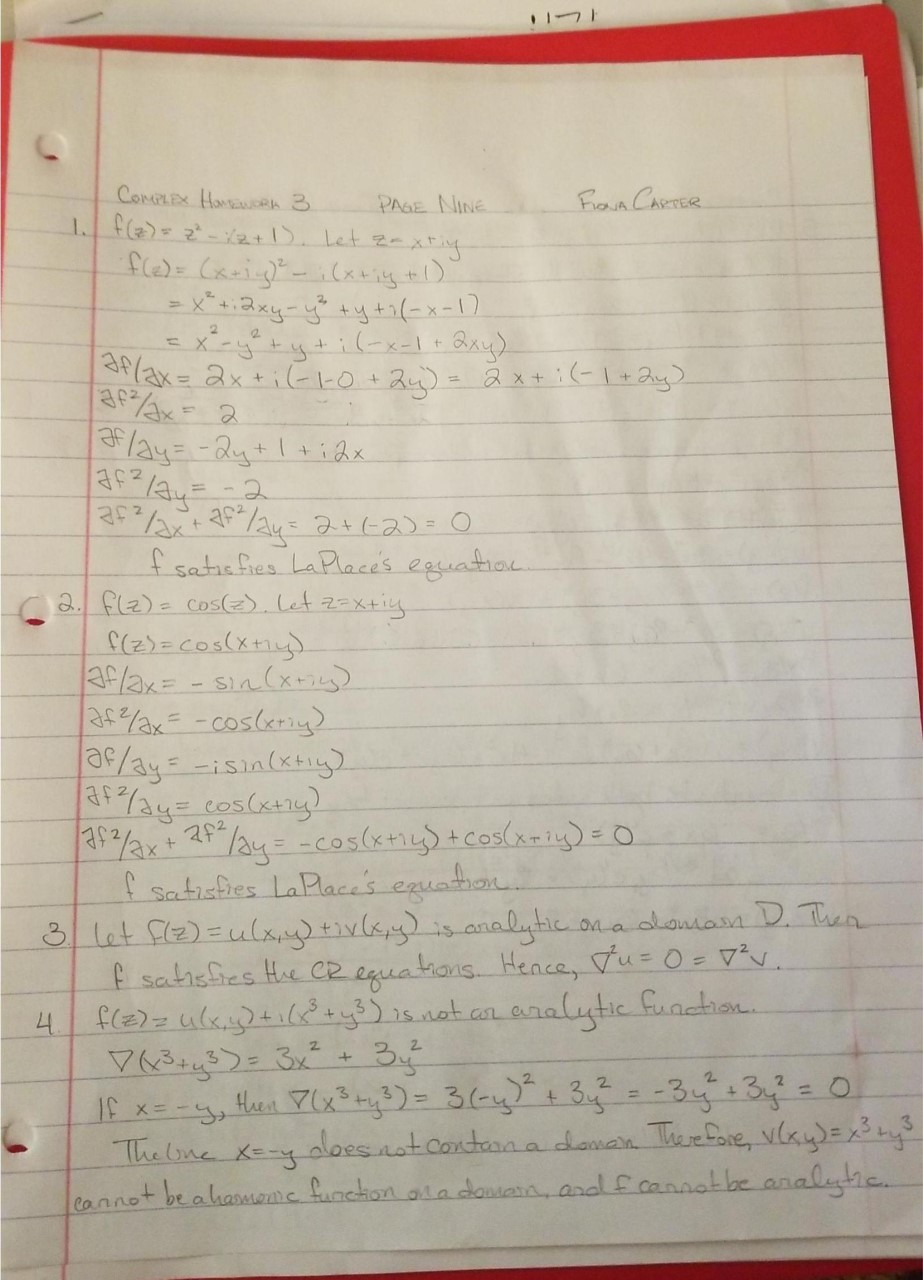 COMPLEX HOMEWORK 3 PAGE NINE FIONA CARTER
1. f(z) = z² - i(z+1). Let z = x+iy
f(z) = (x+iy)² - i(x+iy+1)
= x² + i2xy - y² + y + i(-x-1)
= x² - y² + y + i(-x-1+2xy)
∂f/∂x = 2x + i(-1-0+2y) = 2x + i(-1+2y)
∂f²/∂x = 2
∂f/∂y = -2y + 1 + i2x
∂f²/∂y = -2
∂f²/∂x + ∂f²/∂y = 2+(-2) = 0
f satisfies LaPlace's equation.
2. f(z) = cos(z). Let z=x+iy
f(z) = cos(x+iy)
∂f/∂x = - sin(x+iy)
∂f²/∂x = -cos(x+iy)
∂f/∂y = -isin(x+iy)
∂f²/∂y = cos(x+iy)
∂f²/∂x + ∂f²/∂y = -cos(x+iy)+cos(x+iy) = 0
f satisfies LaPlace's equation.
3. Let f(z) = u(x,y)+iv(x,y) is analytic on a domain D. Then
f satisfies the CR equations. Hence, ∇²u = 0 = ∇²v.
4. f(z) = u(x,y)+i(x³+y³) is not an analytic function.
∇(x³+y³) = 3x² + 3y²
If x = -y, then ∇(x³+y³) = 3(-y)² + 3y² = -3y² + 3y² = 0
The line x=-y does not contain a domain. Therefore, v(x,y) = x³+y³
cannot be a harmonic function on a domain, and f cannot be analytic.